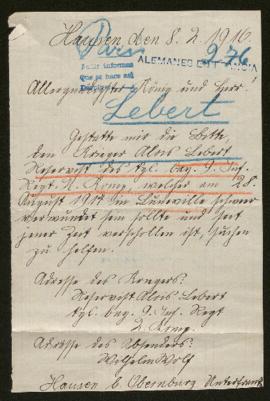 Hausen, den 8. 2. 1916.
Paris
ALEMANES EN FRANCIA
976
Pedir informes
Que se hace así
Allergnädigster König und Herr!
Lebert
Gestatte mir die Bitte,
den Krieger Alois Lebert
Reservist des kgl. bay. 9. Inf.
Regt. 2. Komp., welcher am 28.
August 1914 bei Luneville schwer
verwundet sein sollte und seit
jener Zeit verschollen ist, suchen
zu helfen.
Adresse des Kriegers:
Reservist Alois Lebert
kgl. bay. 9. Inf. Regt
2. Komp.
Adresse des Absenders:
Wilhelm Wolf
Hausen b. Obernburg Unterfrank.